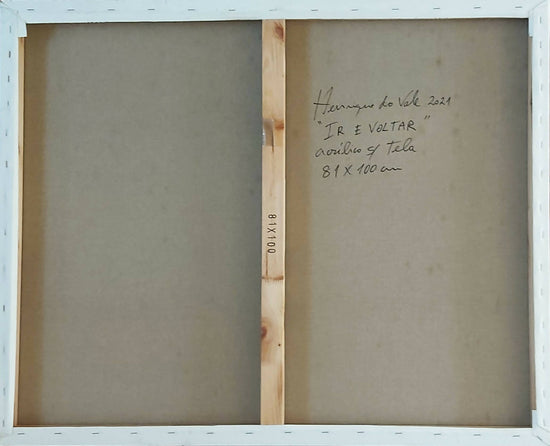 Henrique do Vale 2021
"IR E VOLTAR"
acrílico s/ Tela
81 X 100 cm
81X100